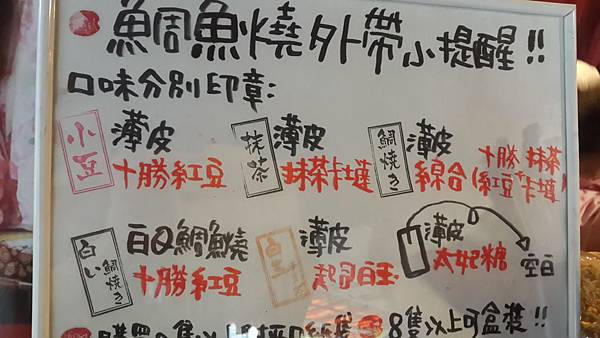 鯛魚燒外帶小提醒!!
口味分別印章:
小豆 薄皮 十勝紅豆
抹茶 薄皮 抹茶卡士達
鯛焼き 薄皮 綜合(十勝紅豆+抹茶卡士達)
白い鯛焼き 白Q鯛魚燒 十勝紅豆
薄皮 起司白玉
薄皮 太妃糖 空白
8隻以上可盒裝!!